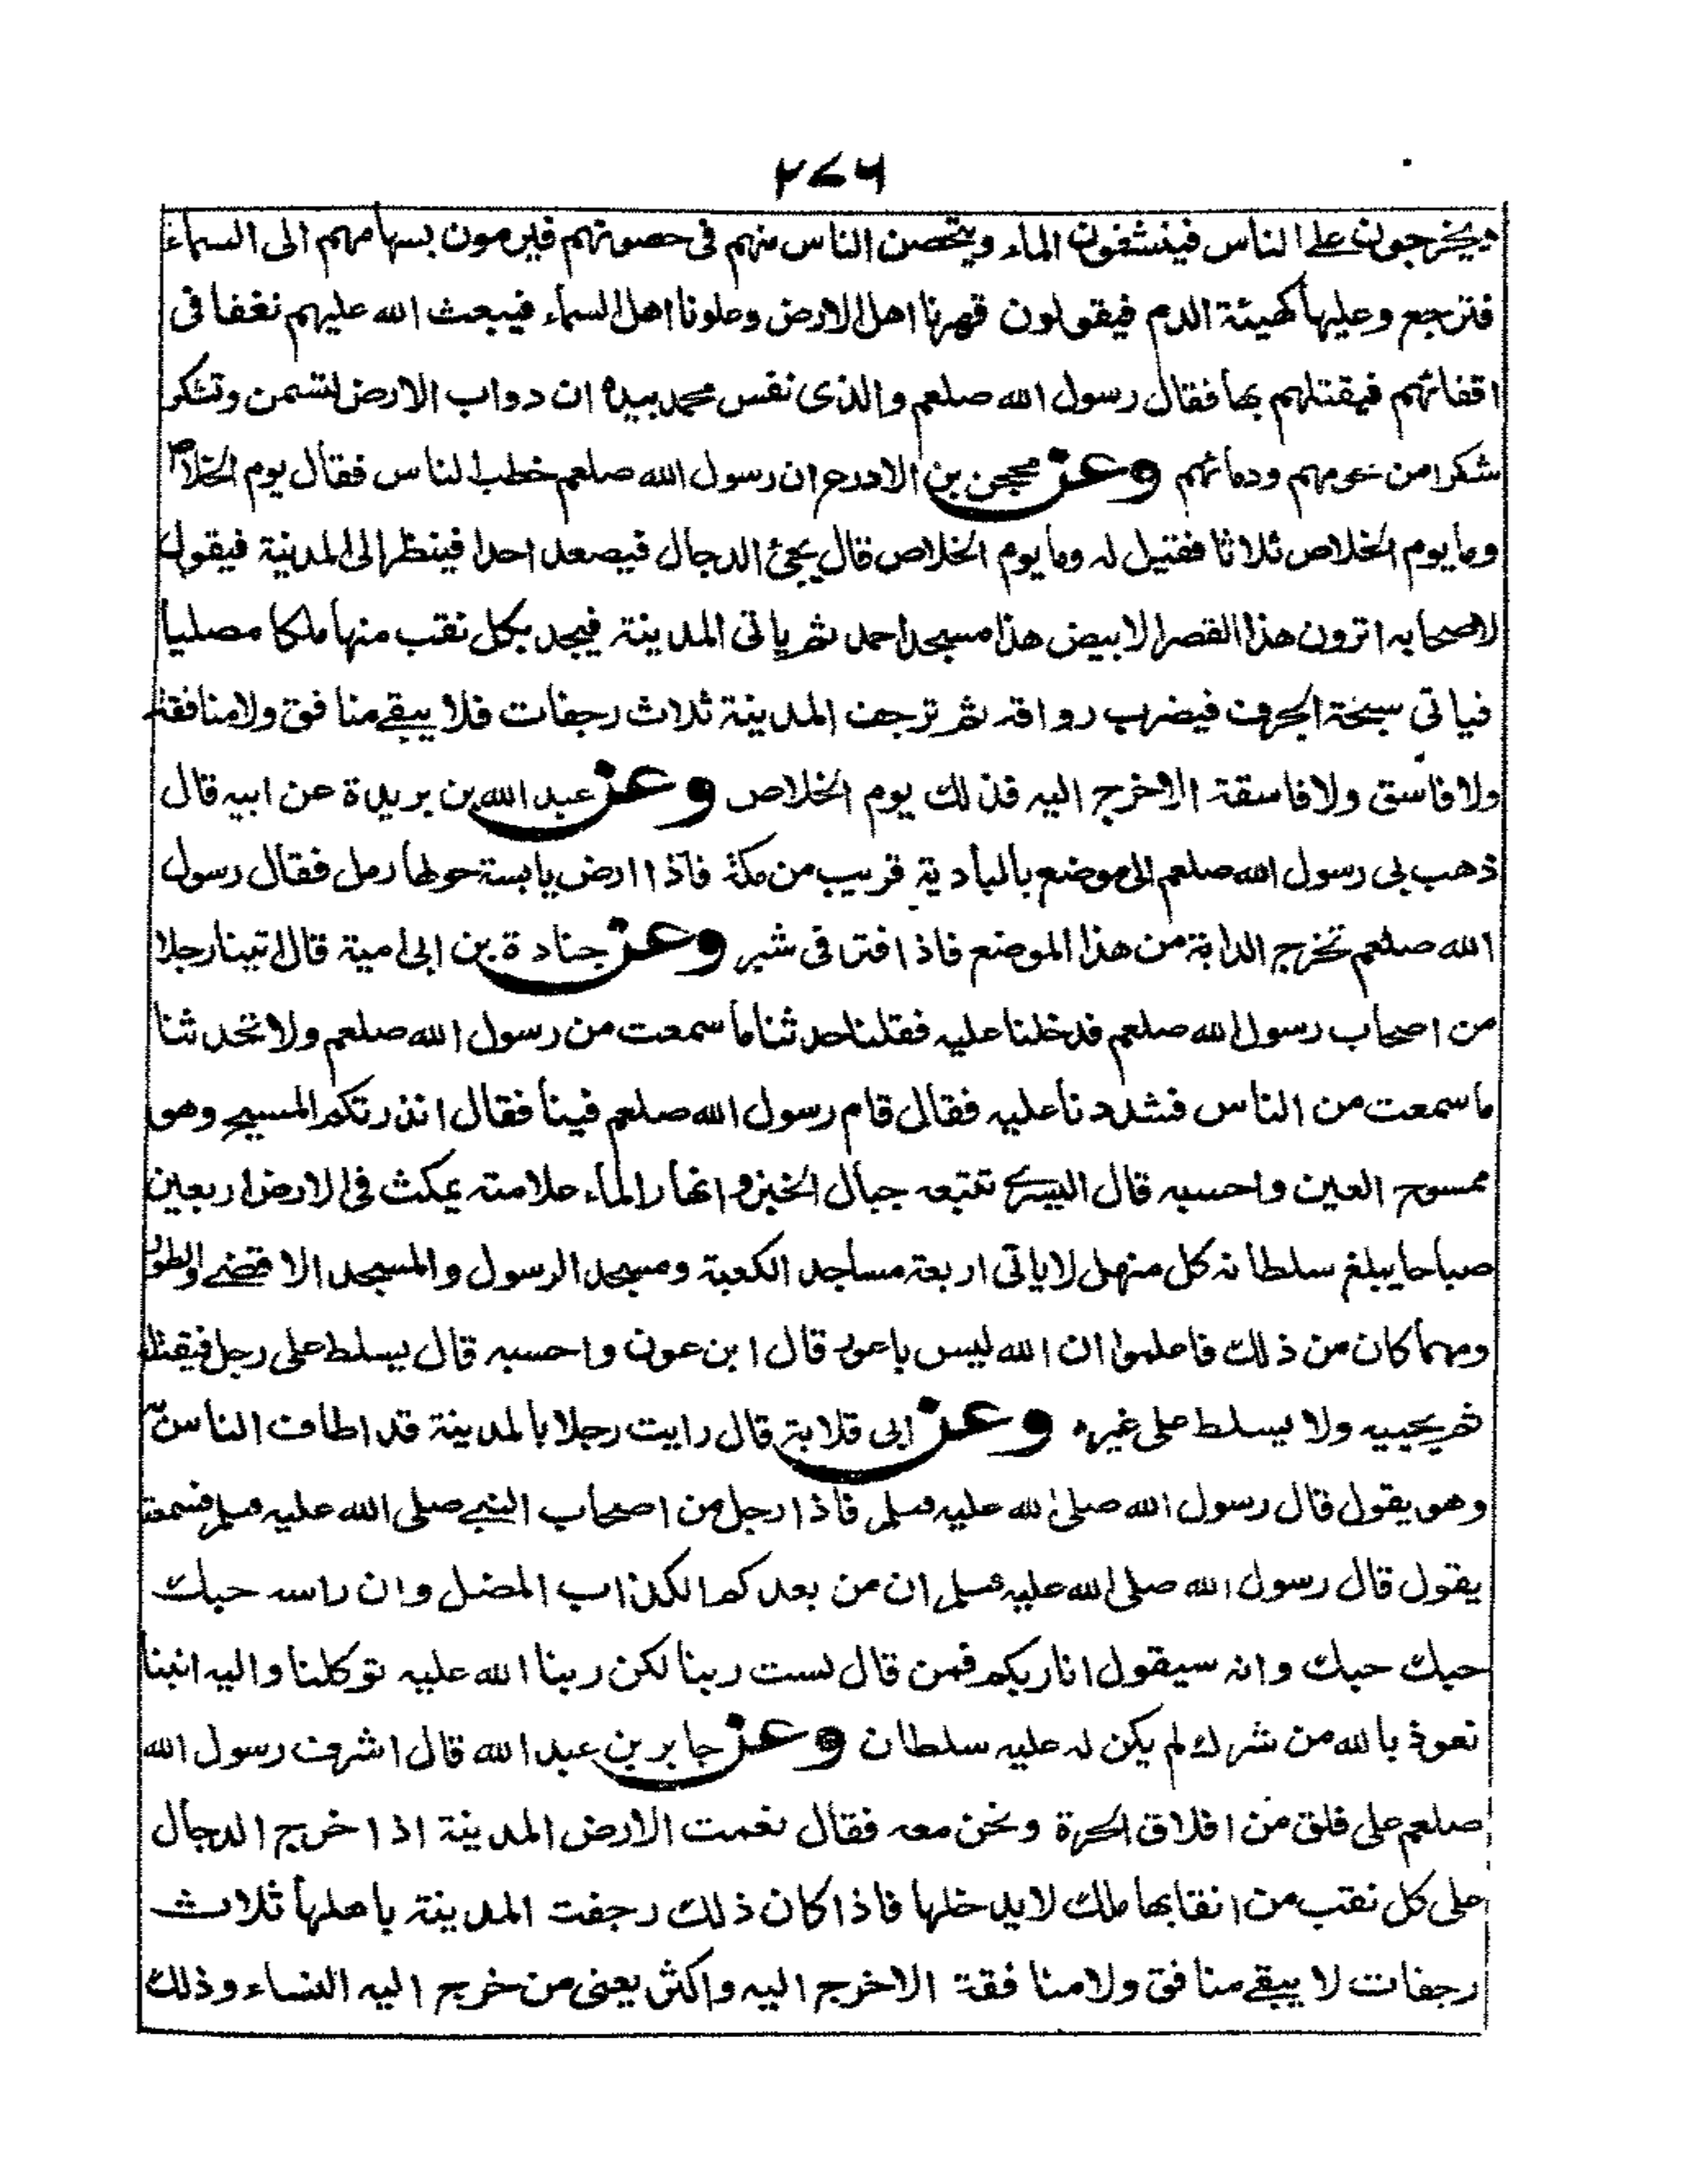 ٢٧٦
ويخرجون على الناس فينشفون الماء ويتحصن الناس منهم فى حصونهم فيرمون بسهامهم الى السماء
فترجع وعليها كهيئة الدم فيقولون قهرنا اهل الارض وعلونا اهل السماء فيبعث الله عليهم نغفا فى
اقفائهم فيقتلهم بها فقال رسول الله صلعم والذى نفس محمد بيده ان دواب الارض لتسمن وتشكر
شكرا من لحومهم ودمائهم وعن محجن بن الادرع ان رسول الله صلعم خطب الناس فقال يوم الخلاص
وما يوم الخلاص ثلاثا فقيل له وما يوم الخلاص قال يجئ الدجال فيصعد احدا فينظر الى المدينة فيقول
لاصحابه اترون هذا القصر الابيض هذا مسجد احمد ثم ياتى المدينة فيجد بكل نقب منها ملكا مصليا
فياتى سبخة الجرف فيضرب رواقه ثم ترجف المدينة ثلاث رجفات فلا يبقے منافق ولا منافقة
ولا فاسق ولا فاسقة الا خرج اليه فذلك يوم الخلاص وعن عبد الله بن بريدة عن ابيه قال
ذهب بى رسول الله صلعم الى موضع بالبادية قريب من مكة فاذا ارض يابسة حولها رمل فقال رسول
الله صلعم تخرج الدابة من هذا الموضع فاذا فترا فى شبر وعن جنادة بن ابى امية قال اتينا رجلا
من اصحاب رسول الله صلعم فدخلنا عليه فقلنا حدثنا ما سمعت من رسول الله صلعم ولا تحدثنا
ما سمعت من الناس فشددنا عليه فقال قام رسول الله صلعم فينا فقال انذرتكم المسيح وهو
ممسوح العين واحسبه قال اليسرى تتبعه جبال الخبز وانهار الماء علامته يمكث فى الارض اربعين
صباحا يبلغ سلطانه كل منهل لا ياتى اربعة مساجد الكعبة ومسجد الرسول والمسجد الاقصے والطور
ومهما كان من ذلك فاعلموا ان الله ليس باعور قال ابن عون واحسبه قال يسلط على رجل فيقتله
ثم يحييه ولا يسلط على غيره وعن ابى قلابة قال رايت رجلا بالمدينة قد اطاف الناس به
وهو يقول قال رسول الله صلى الله عليه وسلم فاذا رجل من اصحاب النبے صلى الله عليه وسلم فسمعته
يقول قال رسول الله صلى الله عليه وسلم ان من بعدكم الكذاب المضل وان راسه حبك
حبك حبك وانه سيقول انا ربكم فمن قال لست ربنا لكن ربنا الله عليه توكلنا واليه انبنا
نعوذ بالله من شرك لم يكن له عليه سلطان وعن جابر بن عبد الله قال اشرف رسول الله
صلعم على فلق من افلاق الحرة ونحن معه فقال نعمت الارض المدينة اذا خرج الدجال
على كل نقب من انقابها ملك لا يدخلها فاذا كان ذلك رجفت المدينة باهلها ثلاث
رجفات لا يبقے منافق ولا منافقة الا خرج اليه واكثر يعنى من خرج اليه النساء وذلك